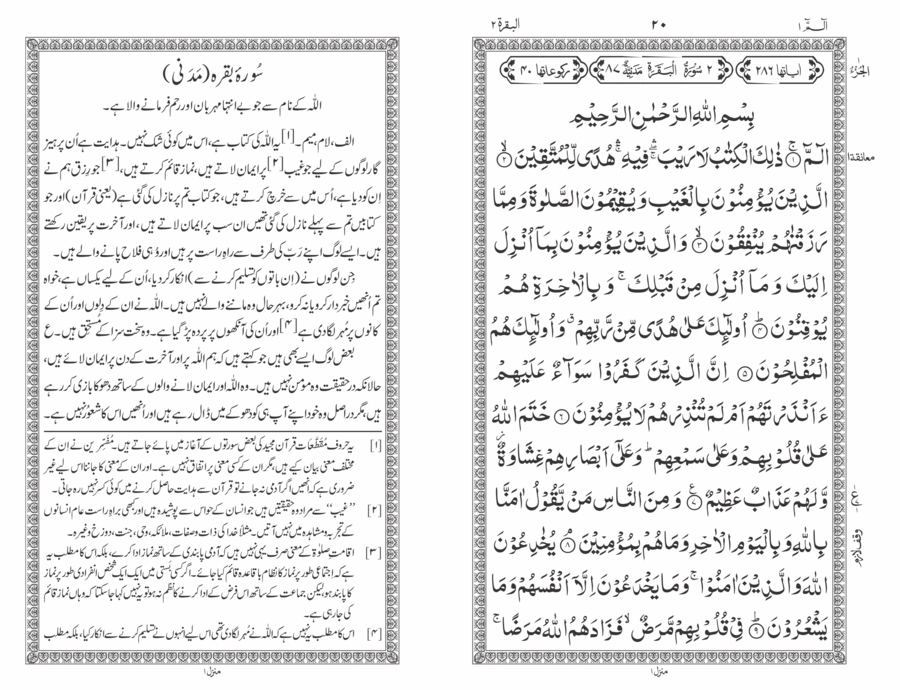 الٓمّٓ ۱
۲۰
البقرة ۲
اٰیاتها ۲۸۶
۲ سُوْرَةُ الْبَقَرَةِ مَدَنِيَّةٌ ۸۷
رکوعاتها ۴۰
بِسْمِ اللهِ الرَّحْمٰنِ الرَّحِيْمِ
الٓمّٓ ۚ۝۱ ذٰلِكَ الْكِتٰبُ لَا رَيْبَ ۛۚ فِيْهِ ۛۚ هُدًى لِّلْمُتَّقِيْنَ ۙ۝۲
الَّذِيْنَ يُؤْمِنُوْنَ بِالْغَيْبِ وَيُقِيْمُوْنَ الصَّلٰوةَ وَمِمَّا
رَزَقْنٰهُمْ يُنْفِقُوْنَ ۙ۝۳ وَالَّذِيْنَ يُؤْمِنُوْنَ بِمَآ اُنْزِلَ
اِلَيْكَ وَمَآ اُنْزِلَ مِنْ قَبْلِكَ ۚ وَبِالْاٰخِرَةِ هُمْ
يُوْقِنُوْنَ ؕ۝۴ اُولٰٓئِكَ عَلٰى هُدًى مِّنْ رَّبِّهِمْ ۗ وَاُولٰٓئِكَ هُمُ
الْمُفْلِحُوْنَ ۝۵ اِنَّ الَّذِيْنَ كَفَرُوْا سَوَآءٌ عَلَيْهِمْ
ءَاَنْذَرْتَهُمْ اَمْ لَمْ تُنْذِرْهُمْ لَا يُؤْمِنُوْنَ ۝۶ خَتَمَ اللهُ
عَلٰى قُلُوْبِهِمْ وَعَلٰى سَمْعِهِمْ ؕ وَعَلٰٓى اَبْصَارِهِمْ غِشَاوَةٌ ۫
وَّلَهُمْ عَذَابٌ عَظِيْمٌ ۝۷ وَمِنَ النَّاسِ مَنْ يَّقُوْلُ اٰمَنَّا
بِاللهِ وَبِالْيَوْمِ الْاٰخِرِ وَمَا هُمْ بِمُؤْمِنِيْنَ ۘ۝۸ يُخٰدِعُوْنَ
اللهَ وَالَّذِيْنَ اٰمَنُوْا ۚ وَمَا يَخْدَعُوْنَ اِلَّآ اَنْفُسَهُمْ وَمَا
يَشْعُرُوْنَ ؕ۝۹ فِيْ قُلُوْبِهِمْ مَّرَضٌ ۙ فَزَادَهُمُ اللهُ مَرَضًا ۚ
الجزء
معانقة ۱
ع
وقف لازم
منزل ۱
سُورۂ بقرہ (مَدَنی)
اللہ کے نام سے جو بے انتہا مہربان اور رحم فرمانے والا ہے۔
الف، لام، میم۔[۱] یہ اللہ کی کتاب ہے، اس میں کوئی شک نہیں۔ ہدایت ہے اُن پرہیز
گار لوگوں کے لیے جو غیب[۲] پر ایمان لاتے ہیں، نماز قائم کرتے ہیں،[۳] جو رزق ہم نے
اِن کو دیا ہے، اُس میں سے خرچ کرتے ہیں، جو کتاب تم پر نازل کی گئی ہے (یعنی قرآن) اور جو
کتابیں تم سے پہلے نازل کی گئی تھیں ان سب پر ایمان لاتے ہیں، اور آخرت پر یقین رکھتے
ہیں۔ ایسے لوگ اپنے رَبّ کی طرف سے راہِ راست پر ہیں اور وُہی فلاح پانے والے ہیں۔
جن لوگوں نے (اِن باتوں کو تسلیم کرنے سے) انکار کر دیا، اُن کے لیے یکساں ہے، خواہ
تم انھیں خبردار کرو یا نہ کرو، بہر حال وہ ماننے والے نہیں ہیں۔ اللہ نے ان کے دِلوں اور اُن کے
کانوں پر مُہر لگا دی ہے[۴] اور اُن کی آنکھوں پر پردہ پڑ گیا ہے۔ وہ سخت سزا کے مُستحق ہیں۔ ع
بعض لوگ ایسے بھی ہیں جو کہتے ہیں کہ ہم اللہ پر اور آخرت کے دن پر ایمان لائے ہیں،
حالانکہ درحقیقت وہ مومن نہیں ہیں۔ وہ اللہ اور ایمان لانے والوں کے ساتھ دھوکا بازی کر رہے
ہیں، مگر دراصل وہ خود اپنے آپ ہی کو دھوکے میں ڈال رہے ہیں اور انھیں اس کا شعور نہیں ہے۔
[۱] یہ حروفِ مُقطّعات قرآن مجید کی بعض سورتوں کے آغاز میں پائے جاتے ہیں۔ مُفسّرین نے ان کے
مختلف معنی بیان کیے ہیں، مگر ان کے کسی معنی پر اتفاق نہیں ہے۔ اور ان کے معنی کا جاننا اس لیے غیر
ضروری ہے کہ انھیں اگر آدمی نہ جانے تو قرآن سے ہدایت حاصل کرنے میں کوئی کسر نہیں رہ جاتی۔
[۲] ’’غیب‘‘ سے مراد وہ حقیقتیں ہیں جو انسان کے حواس سے پوشیدہ ہیں اور کبھی براہِ راست عام انسانوں
کے تجربہ و مشاہدہ میں نہیں آتیں۔ مثلاً خدا کی ذات و صفات، ملائکہ، وحی، جنت، دوزخ وغیرہ۔
[۳] اقامتِ صلوٰۃ کے معنی صرف یہی نہیں ہیں کہ آدمی پابندی کے ساتھ نماز ادا کرے، بلکہ اس کا مطلب یہ
ہے کہ اجتماعی طور پر نماز کا نظام باقاعدہ قائم کیا جائے۔ اگر کسی بستی میں ایک ایک شخص انفرادی طور پر نماز
کا پابند ہو، لیکن جماعت کے ساتھ اس فرض کے ادا کرنے کا نظم نہ ہو تو یہ نہیں کہا جا سکتا کہ وہاں نماز قائم
کی جا رہی ہے۔
[۴] اس کا مطلب یہ نہیں ہے کہ اللہ نے مُہر لگا دی تھی اس لیے انہوں نے تسلیم کرنے سے انکار کیا، بلکہ مطلب
منزل ۱